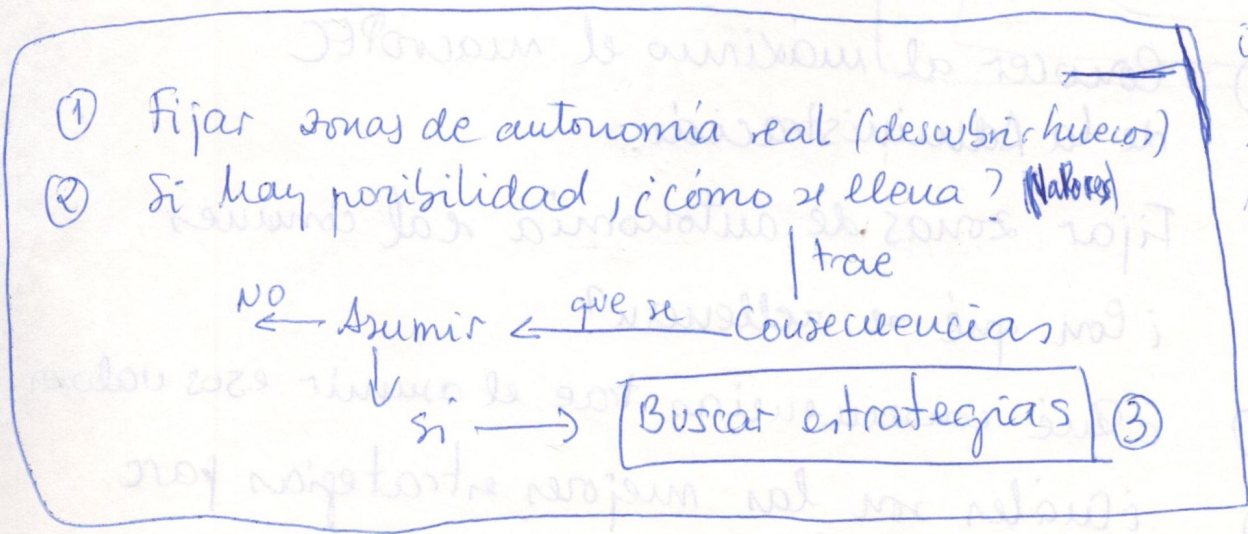 ① Fijar zonas de autonomía real (descubrir huecos)
② Si hay posibilidad, ¿cómo se llena? (Valores)
trae
NO ← Asumir ← que se Consecuencias
Si → Buscar estrategias ③